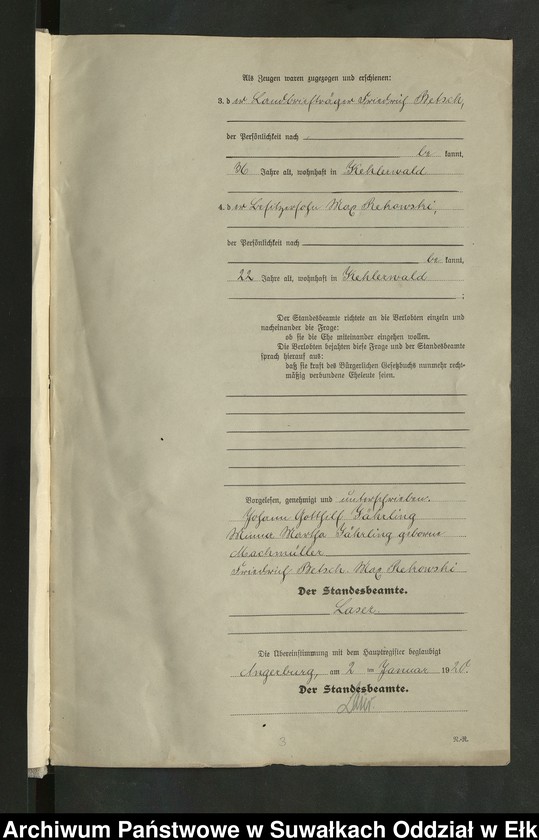 Als Zeugen waren zugezogen und erschienen:
3. der Landbriefträger Friedrich Betsch,
der Persönlichkeit nach
be kannt,
36 Jahre alt, wohnhaft in Kehlerwald
4. der Besitzersohn Max Rekowski,
der Persönlichkeit nach
be kannt,
22 Jahre alt, wohnhaft in Kehlerwald
;
Der Standesbeamte richtete an die Verlobten einzeln und
nacheinander die Frage:
ob sie die Ehe miteinander eingehen wollen.
Die Verlobten bejahten diese Frage und der Standesbeamte
sprach hierauf aus:
daß sie kraft des Bürgerlichen Gesetzbuchs nunmehr recht-
mäßig verbundene Eheleute seien.
Vorgelesen, genehmigt und unterschrieben.
Johann Gottlilf Fährling
Minna Martha Fährling geborene
Machmüller
Friedrich Betsch. Max Rekowski
Der Standesbeamte.
Laser
Die Übereinstimmung mit dem Hauptregister beglaubigt
Angerburg, am 2 ten Januar 1920.
Der Standesbeamte.
3
N.-R.
Archiwum Państwowe w Suwałkach Oddział w Ełk